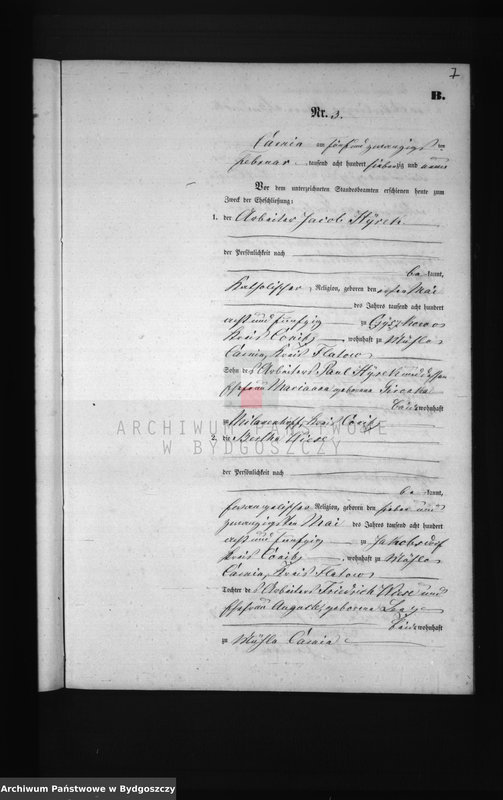 7
B.
Nr. 3.
Camin am fünf und zwanzigsten
Februar tausend acht hundert siebenzig und neun
Vor dem unterzeichneten Standesbeamten erschienen heute zum
Zweck der Eheschließung:
1. der Arbeiter Jacob
der Persönlichkeit nach
be kannt,
katholischer Religion, geboren den ersten Mai
des Jahres tausend acht hundert
acht und fünfzig zu
Kreis Conitz, wohnhaft zu Mühle
Camin, Kreis Flatow
Sohn des Arbeiters Paul und dessen
Ehefrau Marianna geborene
beide wohnhaft
zu Kreis Conitz
2. die Bertha Wiese
der Persönlichkeit nach
be kannt,
evangelischer Religion, geboren den sieben und
zwanzigsten Mai des Jahres tausend acht hundert
acht und fünfzig zu Jakobsdorf
Kreis Conitz, wohnhaft zu Mühle
Camin, Kreis Flatow
Tochter des Arbeiters Friedrich Wiese und
Ehefrau geborene
beide wohnhaft
zu Mühle Camin
ARCHIWUM PAŃSTWOWE
W BYDGOSZCZY
Archiwum Państwowe w Bydgoszczy